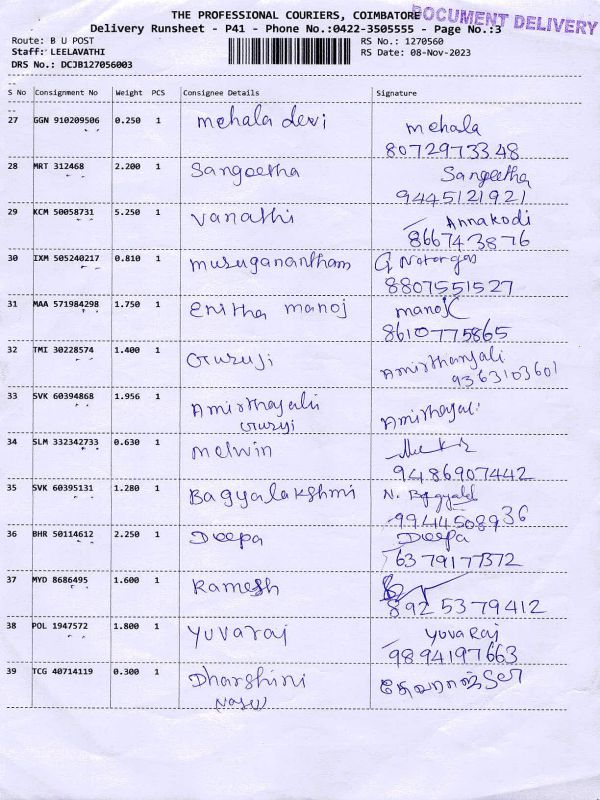 THE PROFESSIONAL COURIERS, COIMBATORE
DOCUMENT DELIVERY
Delivery Runsheet - P41 - Phone No.:0422-3505555 - Page No.:3
Route: B U POST
RS No.: 1270560
Staff: LEELAVATHI
RS Date: 08-Nov-2023
DRS No.: DCJB127056003
S No Consignment No Weight PCS Consignee Details Signature
27 GGN 910209506 0.250 1 Mehala devi Mehala
8072973348
28 MRT 312468 2.200 1 Sangeetha Sangeetha
9445121921
29 KCM 50058731 5.250 1 Vanathi Annakodi
8667743876
30 IXM 505240217 0.810 1 Murugananthan G
8807551527
31 MAA 571984298 1.750 1 Enitha manoj manoj
8610775865
32 TMI 30228574 1.400 1 Guruji Amirthanjali
9363103601
33 SVK 60394868 1.956 1 Amirthajali Amirthayal
Guruji
34 SLM 332342733 0.630 1 Melwin
9486907442
35 SVK 60395131 1.280 1 Bagyalakshmi N. Bagyalak
9944508936
36 BHR 50114612 2.250 1 Deepa Deepa
6379177372
37 MYD 8686495 1.600 1 Ramesh
8925379412
38 POL 1947572 1.800 1 Yuvaraj Yuvaraj
9894197663
39 TCG 40714119 0.300 1 Dharshini தேவராஜ்